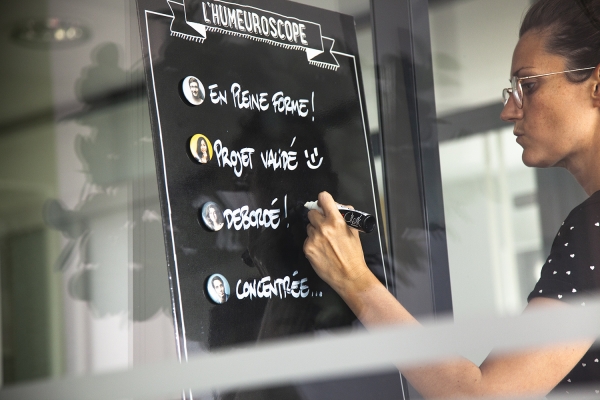 L'HUMEUROSCOPE
EN PLEINE FORME !
PROJET VALIDÉ
DEBORDÉ !
CONCENTRÉE...